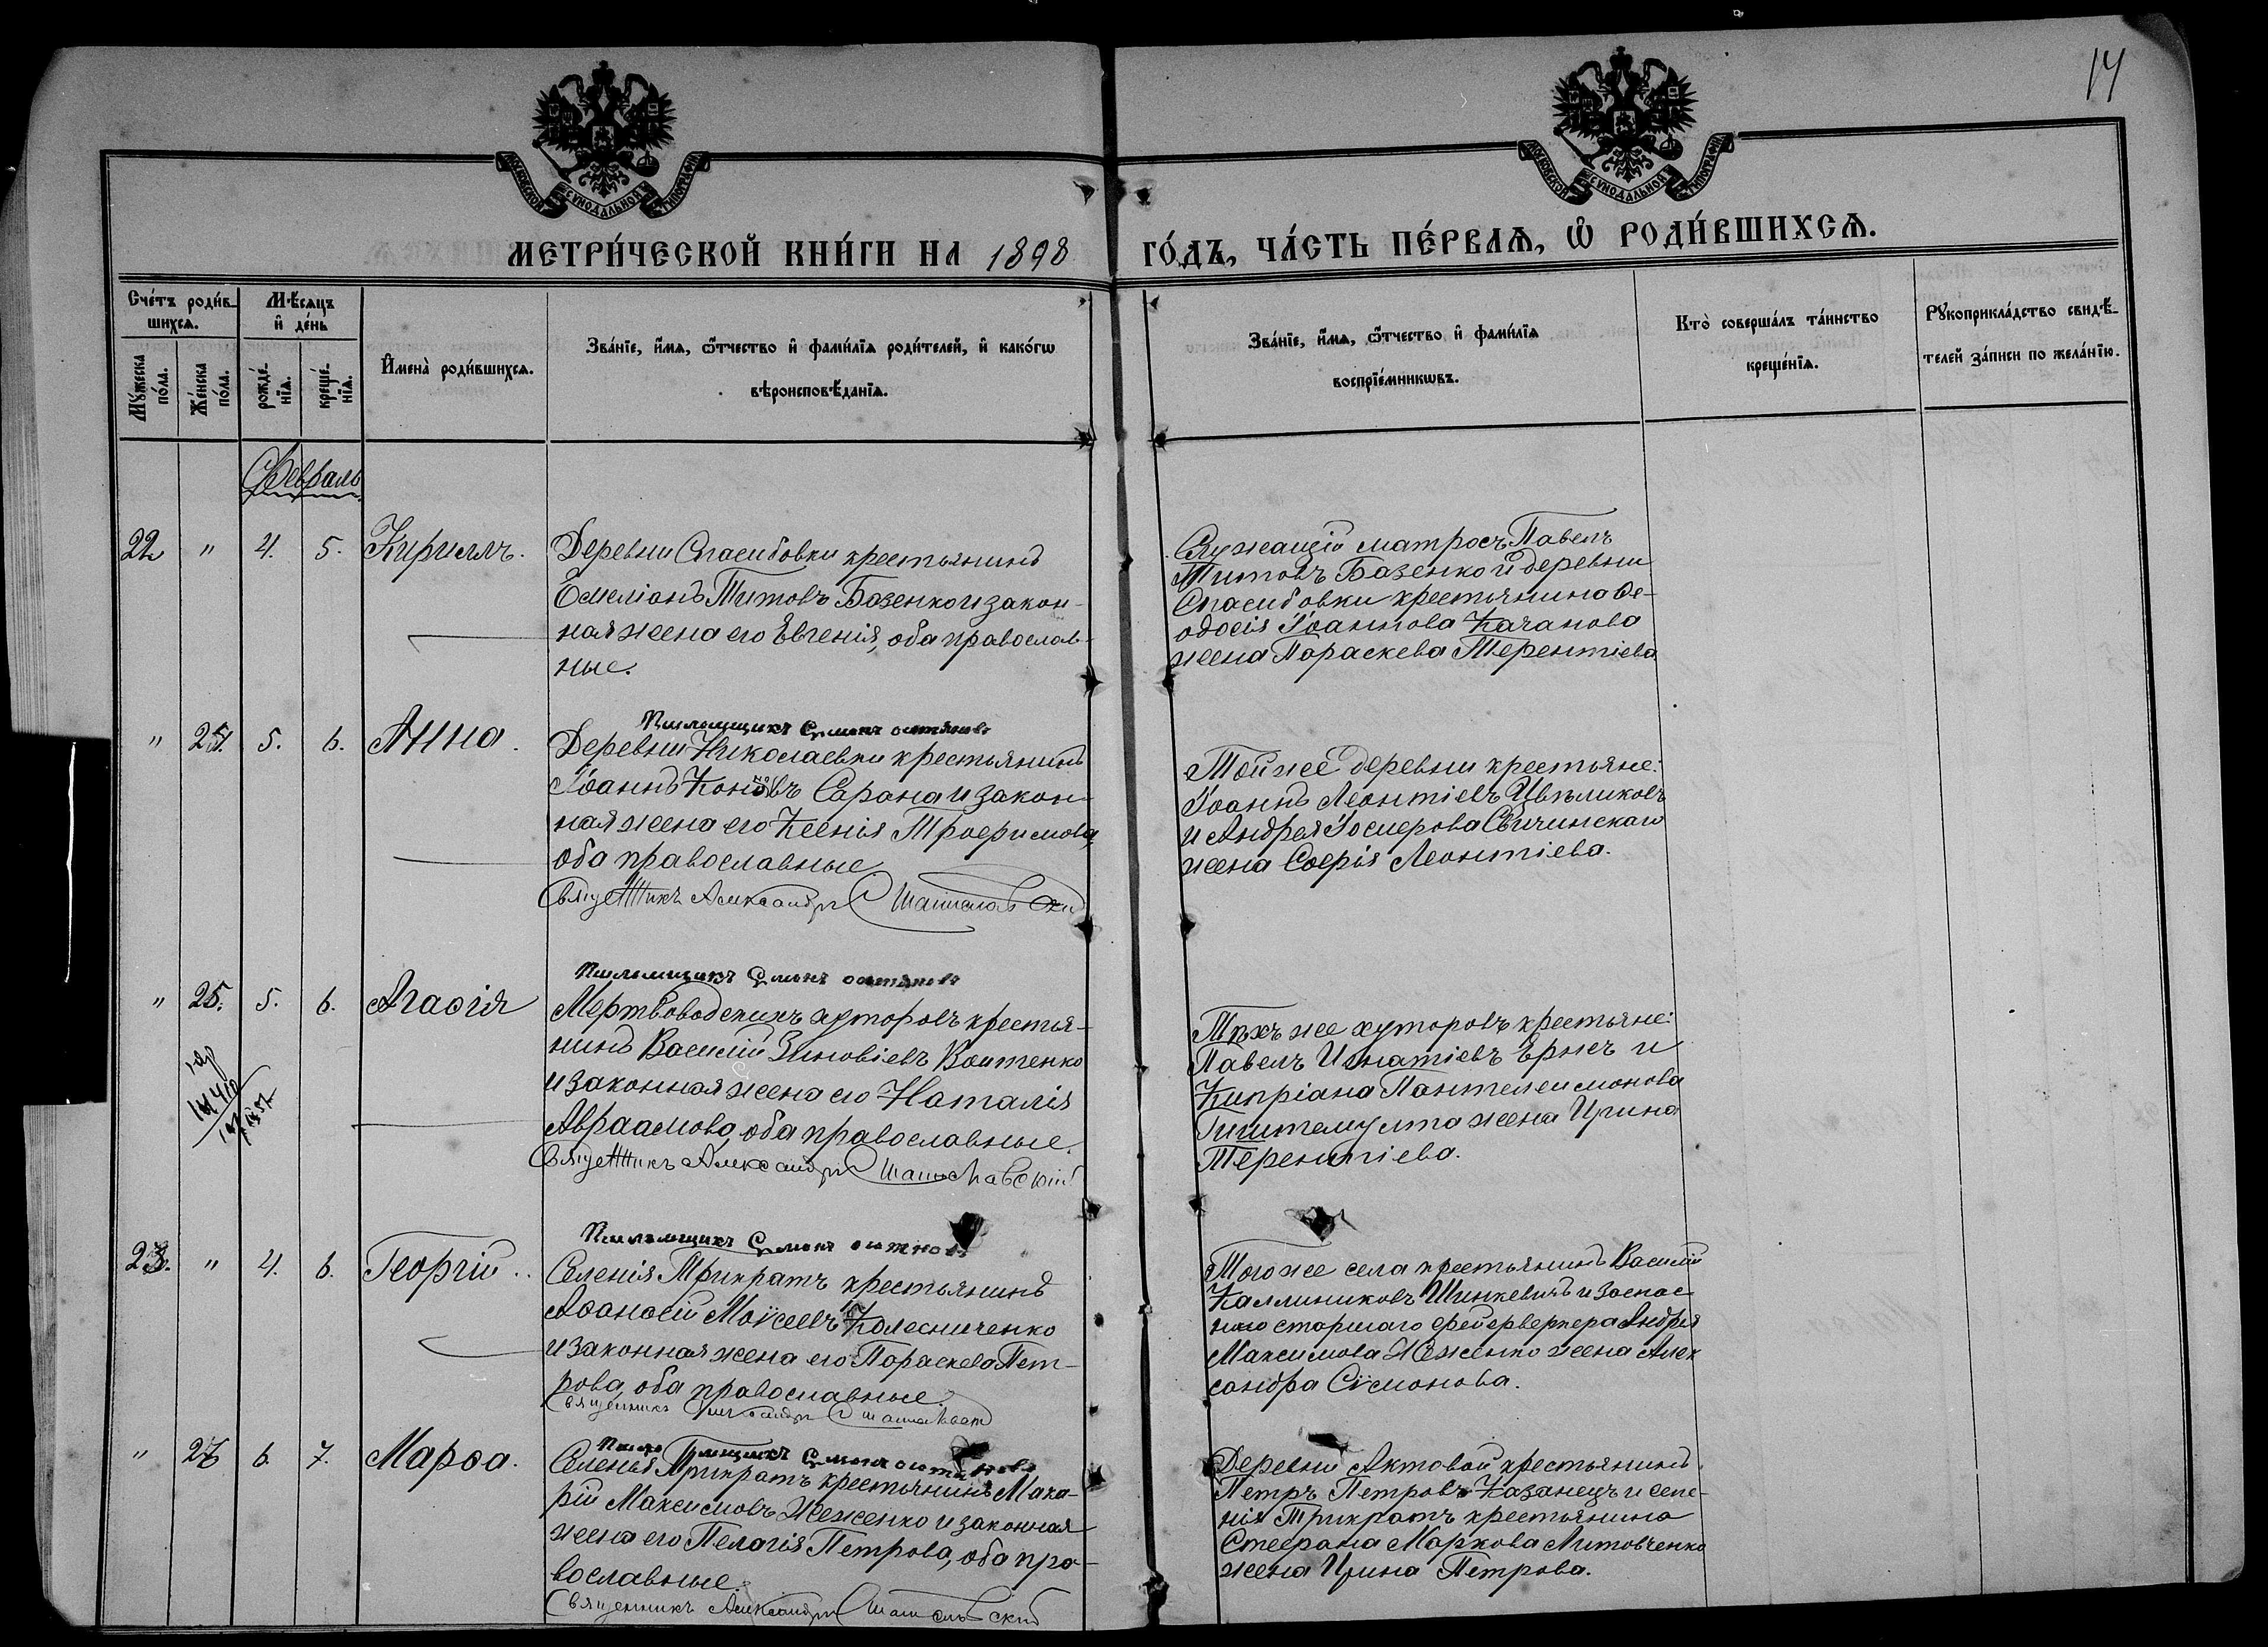 14
МОСКОВСКОЙ СѴНОДАЛЬНОЙ ТИПОГРАФІИ
МОСКОВСКОЙ СѴНОДАЛЬНОЙ ТИПОГРАФІИ
МЕТРИ́ЧЕСКОЙ КНИ́ГИ НА 1898 ГО́ДЪ, ЧА́СТЬ ПЕ́РВАѦ, Ѽ РОДИ́ВШИХСѦ.
Сче́тъ роди́в-
шихсѧ.
Мꙋ́жеска по́ла.
Же́нска по́ла.
Мѣ́сѧцъ
и҆ де́нь
рожде́-
нїѧ.
креще́-
нїѧ.
И҆мена̀ роди́вшихсѧ.
Зва́нїе, и҆́мѧ, ѻ҆́тчество и҆ фами́лїѧ роди́телей, и҆ како́гѡ
вѣроисповѣ́данїѧ.
Зва́нїе, и҆́мѧ, ѻ҆́тчество и҆ фами́лїѧ
воспрїе́мникѡвъ.
Кто̀ соверша́лъ та́инство
креще́нїѧ.
Рꙋкоприкла́дство свидѣ́-
телей за́писи по жела́нїю.
Февраль
22 " 4. 5. Кириллъ.
Деревни Спасибовки крестьянинъ
Емеліанъ Титовъ Базенко и закон-
ная жена его Евгенія, оба православ-
ные.
Служащій матросъ Павелъ
Титовъ Базенко и деревни
Спасибовки крестьянина Ѳе-
одосія Іоаннова Качанова
жена Параскева Терентіева
" 24. 5. 6. Анна.
Псаломщикъ Симонъ
Деревни Николаевки крестьянинъ
Іоаннъ Кононовъ Сарана и закон-
ная жена его Ксенія Трофимова,
оба православные
Священникъ Александръ Шаниславскій
Той же деревни крестьяне:
Іоаннъ Леонтіевъ Цвѣликовъ
и Андрея Іосифова Свичинскаго
жена Софія Леонтіева.
" 25. 5. 6. Агафія
Псаломщикъ Симонъ
Мертвоводскихъ хуторовъ крестья-
нинъ Василій Зиновіевъ Войтенко
и законная жена его Наталія
Авраамова, оба православные.
Священникъ Александръ Шаниславскій
Тѣхъ же хуторовъ крестьяне:
Павелъ Игнатіевъ и
Кипріана Пантелеимонова
жена Ирина
Терентіева.
23. " 4. 6. Георгій
Псаломщикъ Симонъ
Селенія Трикратъ крестьянинъ
Аѳанасій Моѵсеевъ Колесниченко
и законная жена его Параскева Пет-
рова, оба православные.
Священникъ
Того же села крестьянинъ Василій
Каллиниковъ Шинкевичъ и запас-
наго старшаго фейерверкера Андрея
Максимова жена Алек
сандра Сѵмонова.
" 26 6. 7. Марѳа.
Псаломщикъ Симонъ
Селенья Трикратъ крестьянинъ Мака-
рій Максимовъ Неженко и законная
жена его Пелагія Петрова, оба пра-
вославные.
Священникъ Александръ Шаниславскій
Деревни Актовой крестьянинъ
Петръ Петровъ Казанецъ и селе-
нія Трикратъ крестьянина
Стефана Маркова Литовченко
жена Ирина Петрова.